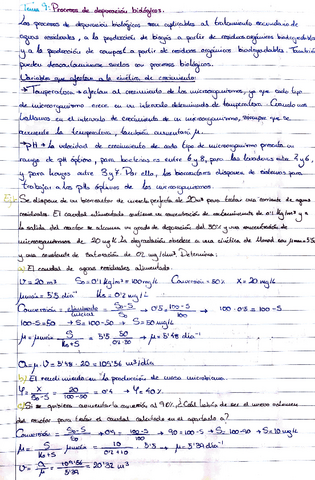 Tema 9: Procesos de depuración biológicos.
Los procesos de depuración biológicos son aplicables al tratamiento secundario de
aguas residuales, a la producción de biogás a partir de residuos orgánicos biodegradables
y a la producción de compost a partir de residuos orgánicos biodegradables. También
pueden descontaminarse suelos con procesos biológicos.
Variables que afectan a la cinética de crecimiento:
→ Temperatura → afectan al crecimiento de los microorganismos, ya que cada tipo
de microorganismo crece en un intervalo determinado de temperatura. Cuando nos
hallamos en el intervalo de crecimiento de un microorganismo, siempre que se
aumente la temperatura, también aumentará μ.
→ pH → la velocidad de crecimiento de cada tipo de microorganismo presenta un
rango de pH óptimo, para bacterias es entre 6 y 8, para las levaduras entre 2 y 6,
y para hongos entre 3 y 7. Por ello, los biorreactores disponen de sistemas para
trabajar a los pHs óptimos de los microorganismos.
Ej: Se dispone de un biorreactor de mezcla perfecta de 20m³ para tratar una corriente de aguas
residuales. El caudal alimentado contiene una concentración de contaminante de 0'1 kg/m³ y a
la salida del reactor se alcanza un grado de depuración del 50% y una concentración de
microorganismos de 20 mg/L. La degradación obedece a una cinética de Monod con μmax=5'5
y una constante de saturación de 0'2 mg/L. Determina:
a) El caudal de aguas residuales alimentado.
V = 20 m³ So = 0'1 kg/m³ = 100 mg/L Conversión = 50% X = 20 mg/L
μmáx = 5'5 día⁻¹ Ks = 0'2 mg/L
Conversión = eliminado/inicial = So-S/So → 0'5 = 100-S/100 → 100·0'5 = 100-S
100-S=50 → S=100-50 → S=50 mg/L
μ = μmáx S/Ks+S = 5'5 50/0'2+50 → μ=5'48 día⁻¹
Q = μ·V = 5'48·20 = 109'56 m³/día
b) El rendimiento en la producción de masa microbiana.
Y = X/So-S = 20/100-50 = 0'4 → Y = 40%
c) Si se quisiera aumentar la conversión al 90%, ¿Cuál habría de ser el nuevo volumen
del reactor para tratar el caudal calculado en el apartado a?
Conversión = So-S/So → 0'9 = 100-S/100 → 90=100-S → S=100-90 → S=10 mg/L
μ = S/Ks+S μmáx = 10/0'2+10 · 5'5 → μ=5'39 día⁻¹
V = Q/μ = 109'56/5'39 = 20'32 m³